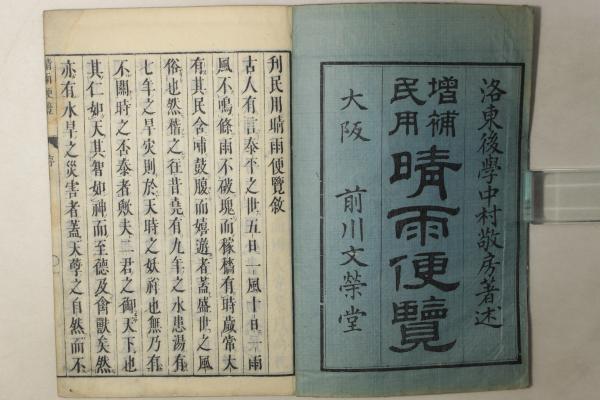 洛東後學中村敬房著述
增補
民用
晴雨便覽
大阪 前川文榮堂
刊民用晴雨便覽敘
古人有言泰平之世五日一風十日一雨
風不鳴條雨不破塊而稼穡有時歲常大
有其民含哺鼓腹而嬉遊者蓋盛世之風
俗也然稽之往昔堯有九年之水患湯有
七年之旱災則於天時之妖祥也無乃有
不關時之否泰者歟夫二君之御天下也
其仁如天其智如神而至德及禽獸矣然
亦有水旱之災害者蓋天孽之自然而不
晴雨便覽 序